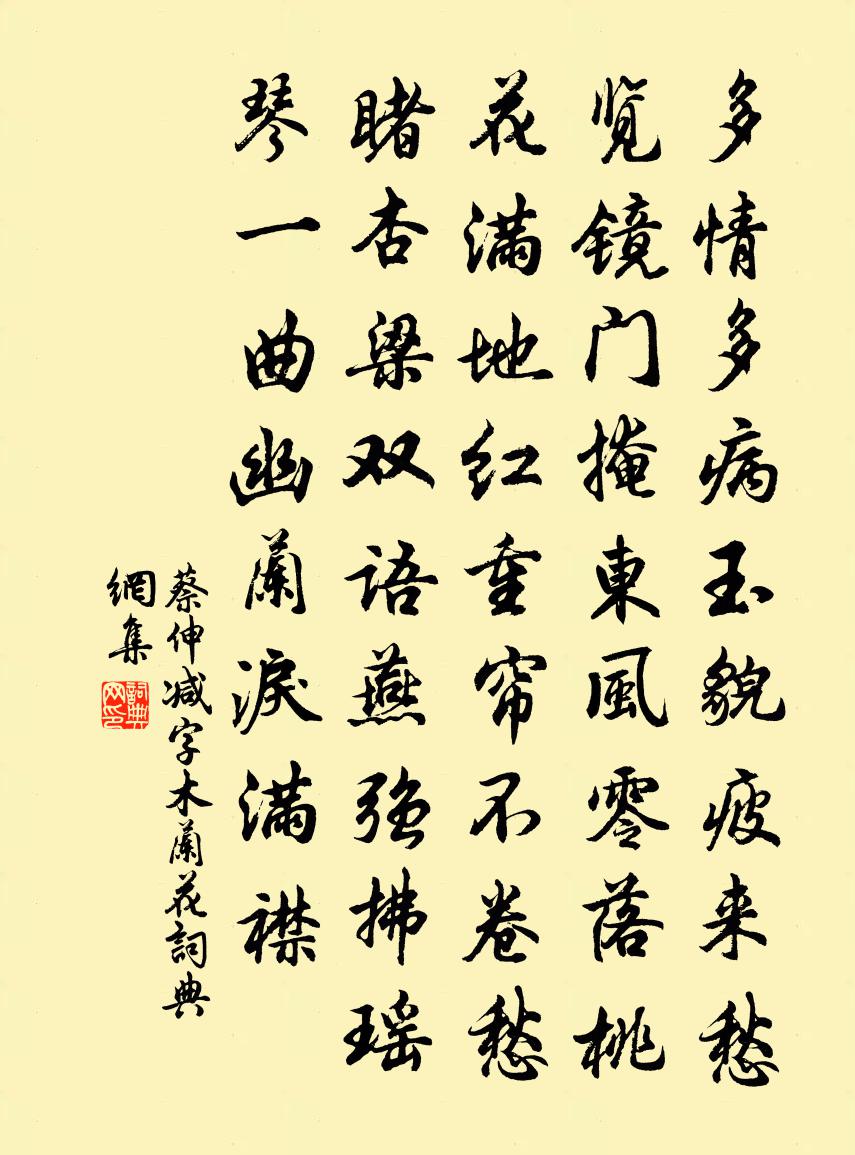 多情多病玉貌疲来愁
览镜门掩東風零落桃
花满地红重帘不卷愁
睹杏梁双语燕强拂瑶
琴一曲幽蘭淚满襟
蔡伸减字木蘭花詞典
網集
詞典
网印